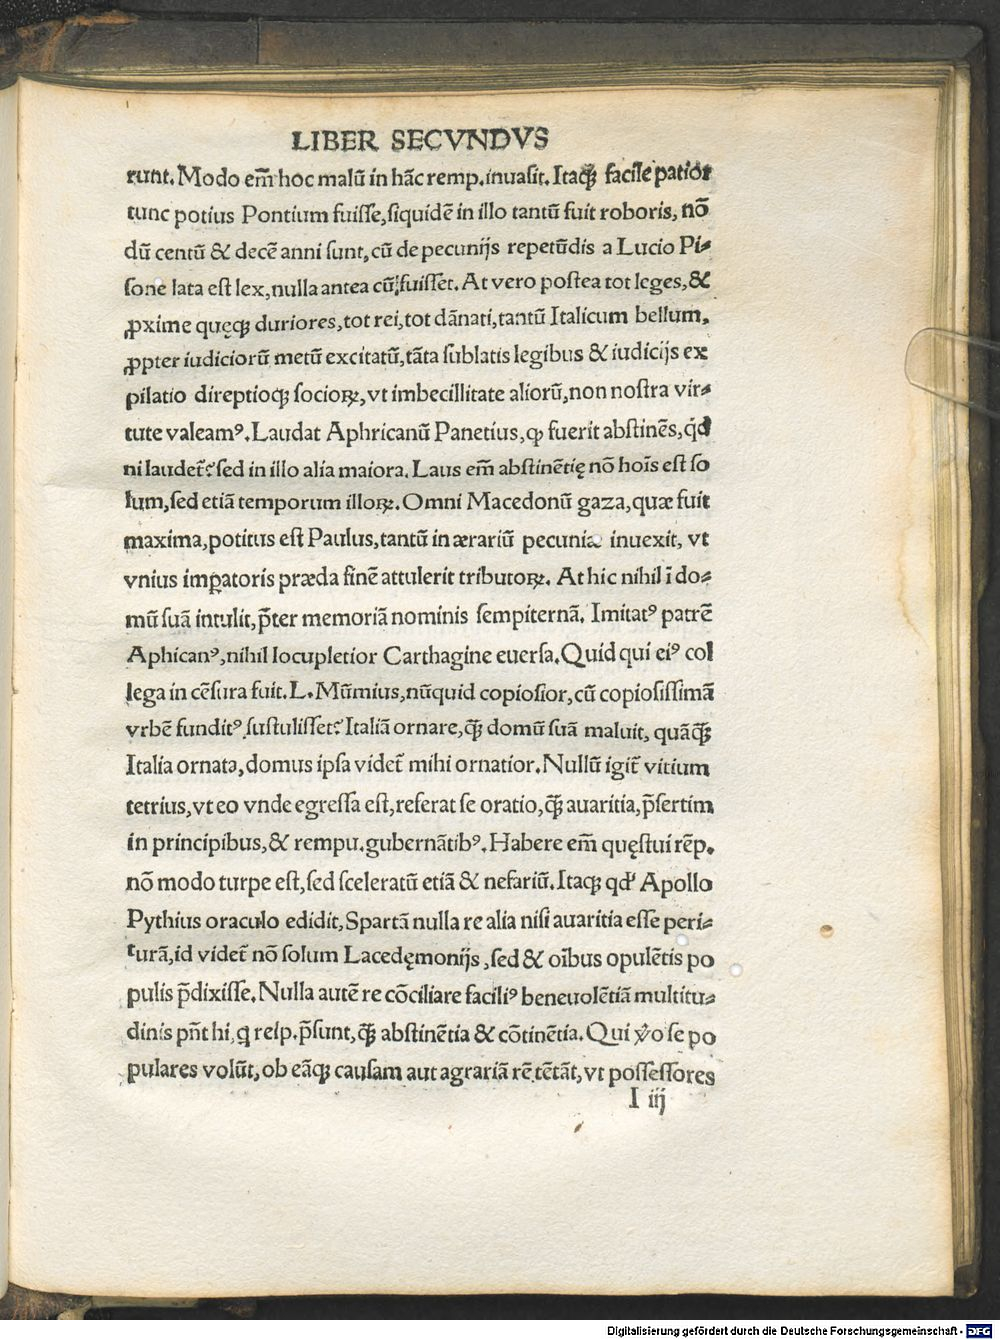 LIBER SECVNDVS
runt. Modo em̄ hoc malū in hāc remp. inuasit. Itaqꝫ facile patior
tunc potius Pontium fuisse, siquidē in illo tantū fuit roboris, nō
dū centū & decē anni sunt, cū de pecunijs repetūdis a Lucio Pi-
sone lata est lex, nulla antea cū fuisset. At vero postea tot leges, &
ꝓxime quęqꝫ duriores, tot rei, tot dānati, tantū Italicum bellum,
ꝓpter iudiciorū metū excitatū, tāta sublatis legibus & iudicijs ex
pilatio direptioqꝫ socioꝝ, vt imbecillitate aliorū, non nostra vir-
tute valeamꝰ. Laudat Aphricanū Panetius, ꝙ fuerit abstinēs, qd̓
ni laudet̄? sed in illo alia maiora. Laus em̄ abstinētię nō hoīs est so
lum, sed etiā temporum illoꝝ. Omni Macedonū gaza, quæ fuit
maxima, potitus est Paulus, tantū in ærariū pecuniæ inuexit, vt
vnius imꝑatoris præda finē attulerit tributoꝝ. At hic nihil ī do-
mū suā intulit, p̄ter memoriā nominis sempiternā. Imitatꝰ patrē
Aphicanꝰ, nihil locupletior Carthagine euersa. Quid qui eiꝰ col
lega in cēsura fuit. L. Mūmius, nūquid copiosior, cū copiosissimā
vrbē funditꝰ sustulisset? Italiā ornare, qꝫ̄ domū suā maluit, quāqꝫ̄
Italia ornata, domus ipsa videt̄ mihi ornatior. Nullū igit̄ vitium
tetrius, vt eo vnde egressa est, referat se oratio, qꝫ̄ auaritia, p̄sertim
in principibus, & rempu. gubernātibꝰ. Habere em̄ quęstui rēp.
nō modo turpe est, sed sceleratū etiā & nefariū. Itaqꝫ qd̓ Apollo
Pythius oraculo edidit, Spartā nulla re alia nisi auaritia esse peri-
turā, id videt̄ nō solum Lacedęmonijs, sed & oībus opulētis po
pulis p̄dixisse. Nulla autē re cōciliare faciliꝰ beneuolētiā multitu-
dinis pn̄t hi, q reip. p̄sunt, qꝫ̄ abstinētia & cōtinētia. Qui v̓o se po
pulares volūt, ob eāqꝫ causam aut agrariā rē tētāt, vt possessores
I iij
Digitalisierung gefördert durch die Deutsche Forschungsgemeinschaft - DFG